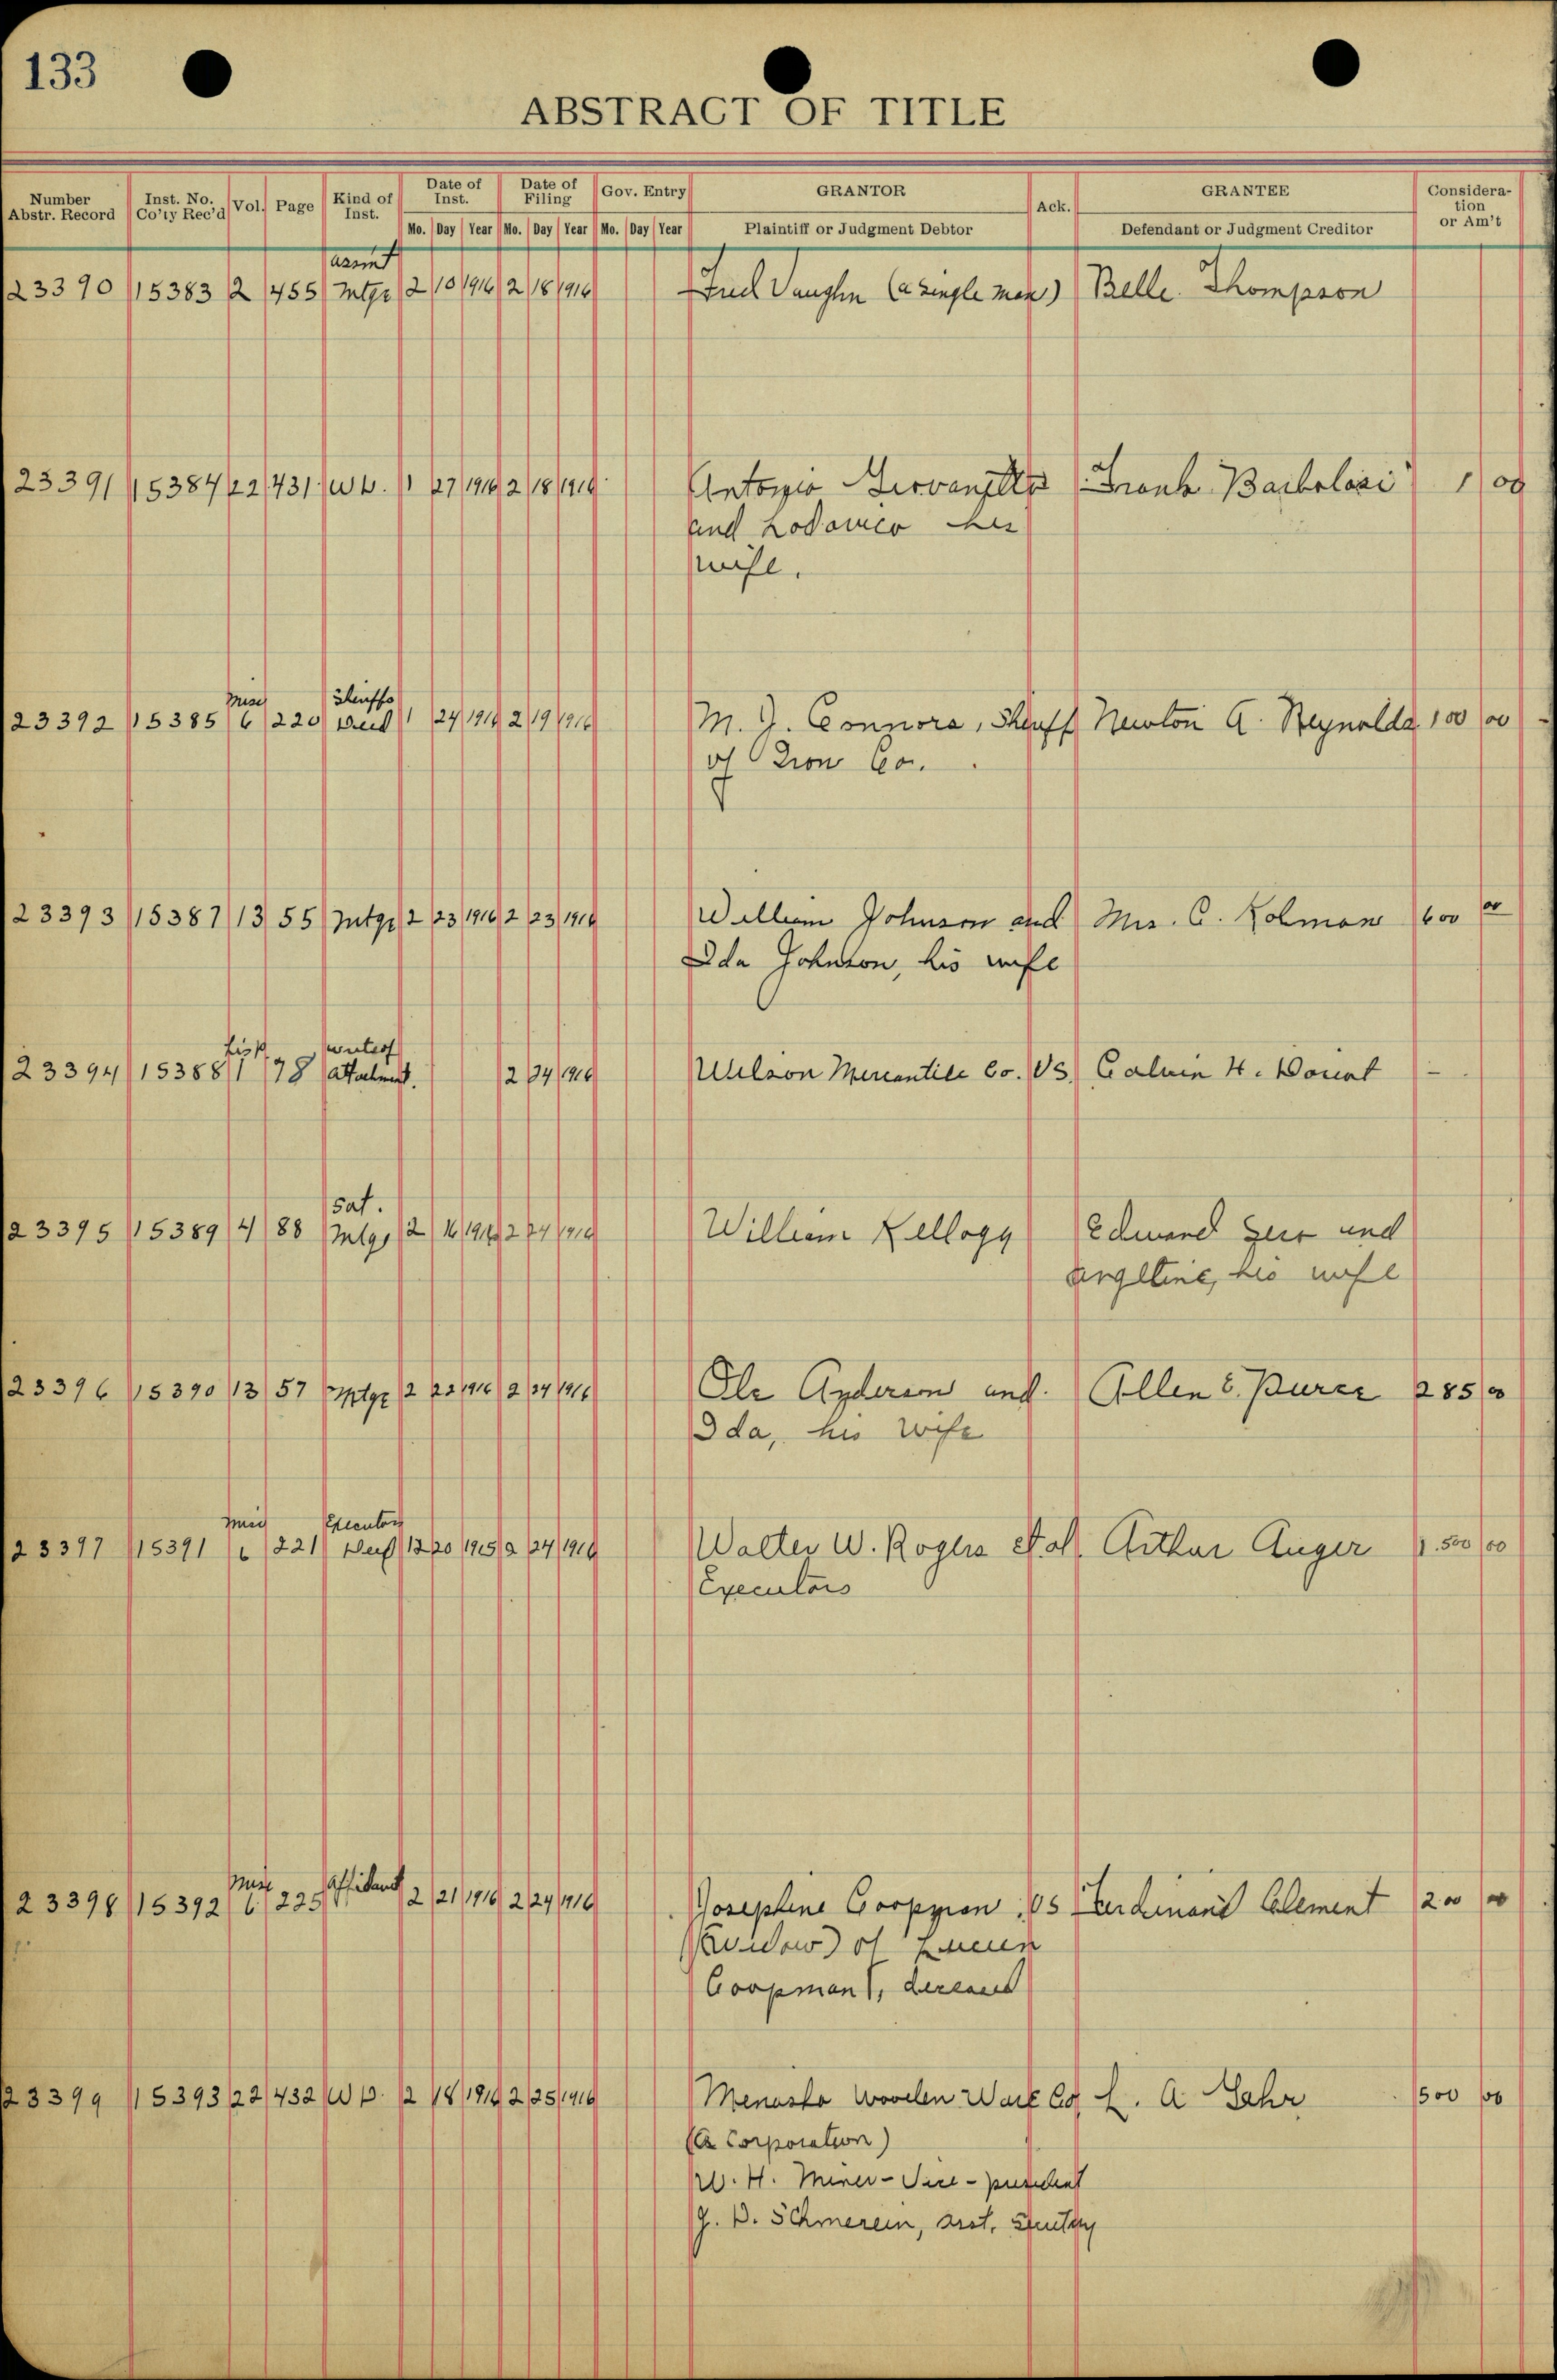 133
ABSTRACT OF TITLE
Number Abstr. Record Inst. No. Co'ty Rec'd Vol. Page Kind of Inst. Date of Inst. Date of Filing Gov. Entry GRANTOR Ack. GRANTEE Consideration or Am't
Mo. Day Year Mo. Day Year Mo. Day Year Plaintiff or Judgment Debtor Defendant or Judgment Creditor
23390 15383 2 455 Mtge 2 18 1916 2 18 1916 Vaughn (a single man) Belle Thompson
23391 15384 22 431 W D. 1 27 1916 2 18 1916 Antonio Frank 1 00
and his
wife.
Misc Sheriffs
23392 15385 6 220 Deed 1 24 1916 2 19 1916 M. J. Connors, Sheriff Newton A. Reynolds 100 00
of Iron Co.
23393 15387 13 55 Mtge 2 23 1916 2 23 1916 William Johnson and Mrs. C. Kolman 600 00
Ida Johnson, his wife
Lis P. writ of
23394 15388 1 78 attachment. 2 24 1916 Wilson Mercantile Co. VS. Calvin H. -
Sat.
23395 15389 4 88 Mtge 2 16 1916 2 24 1916 William Kellogg Edward and
his wife
23396 15390 13 57 Mtge 2 22 1916 2 24 1916 Ole Anderson and Allen E. 285 00
Ida, his wife
Misc Executors
23397 15391 6 221 Deed 12 20 1915 2 24 1916 Walter W. Rogers et al. Arthur Auger 1.500 00
Executors
Misc Affidavit
23398 15392 6 225 2 21 1916 2 24 1916 Josephine VS Ferdinand Clement 200 00
(widow) of
Coopman, deceased
23399 15393 22 432 W D. 2 18 1916 2 25 1916 Menasha Wooden Ware Co L. A. 500 00
(A Corporation)
W. H. Miner - Vice-president
asst. Secretary